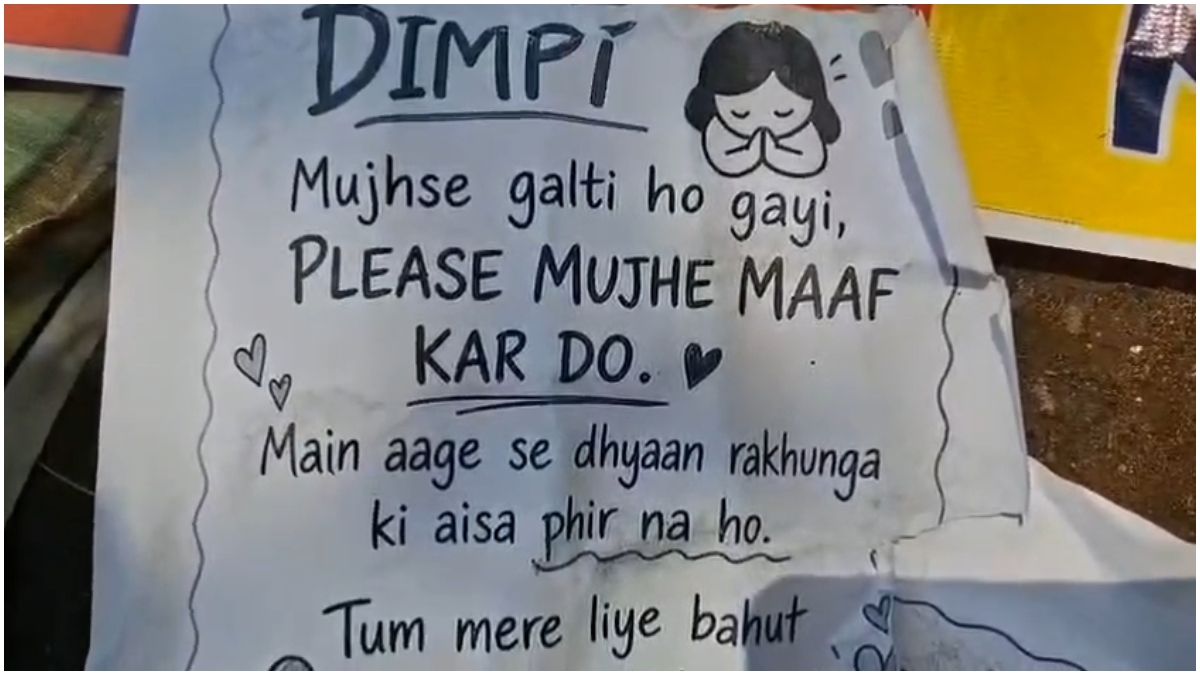 DIMPi
Mujhse galti ho gayi,
PLEASE MUJHE MAAF
KAR DO.
Main aage se dhyaan rakhunga
ki aisa phir na ho.
Tum mere liye bahut